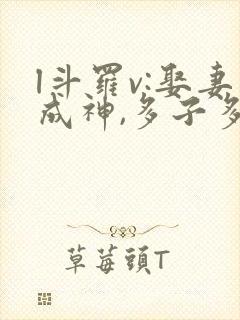 l斗羅v:娶妻
成神,多子多
草莓頭T